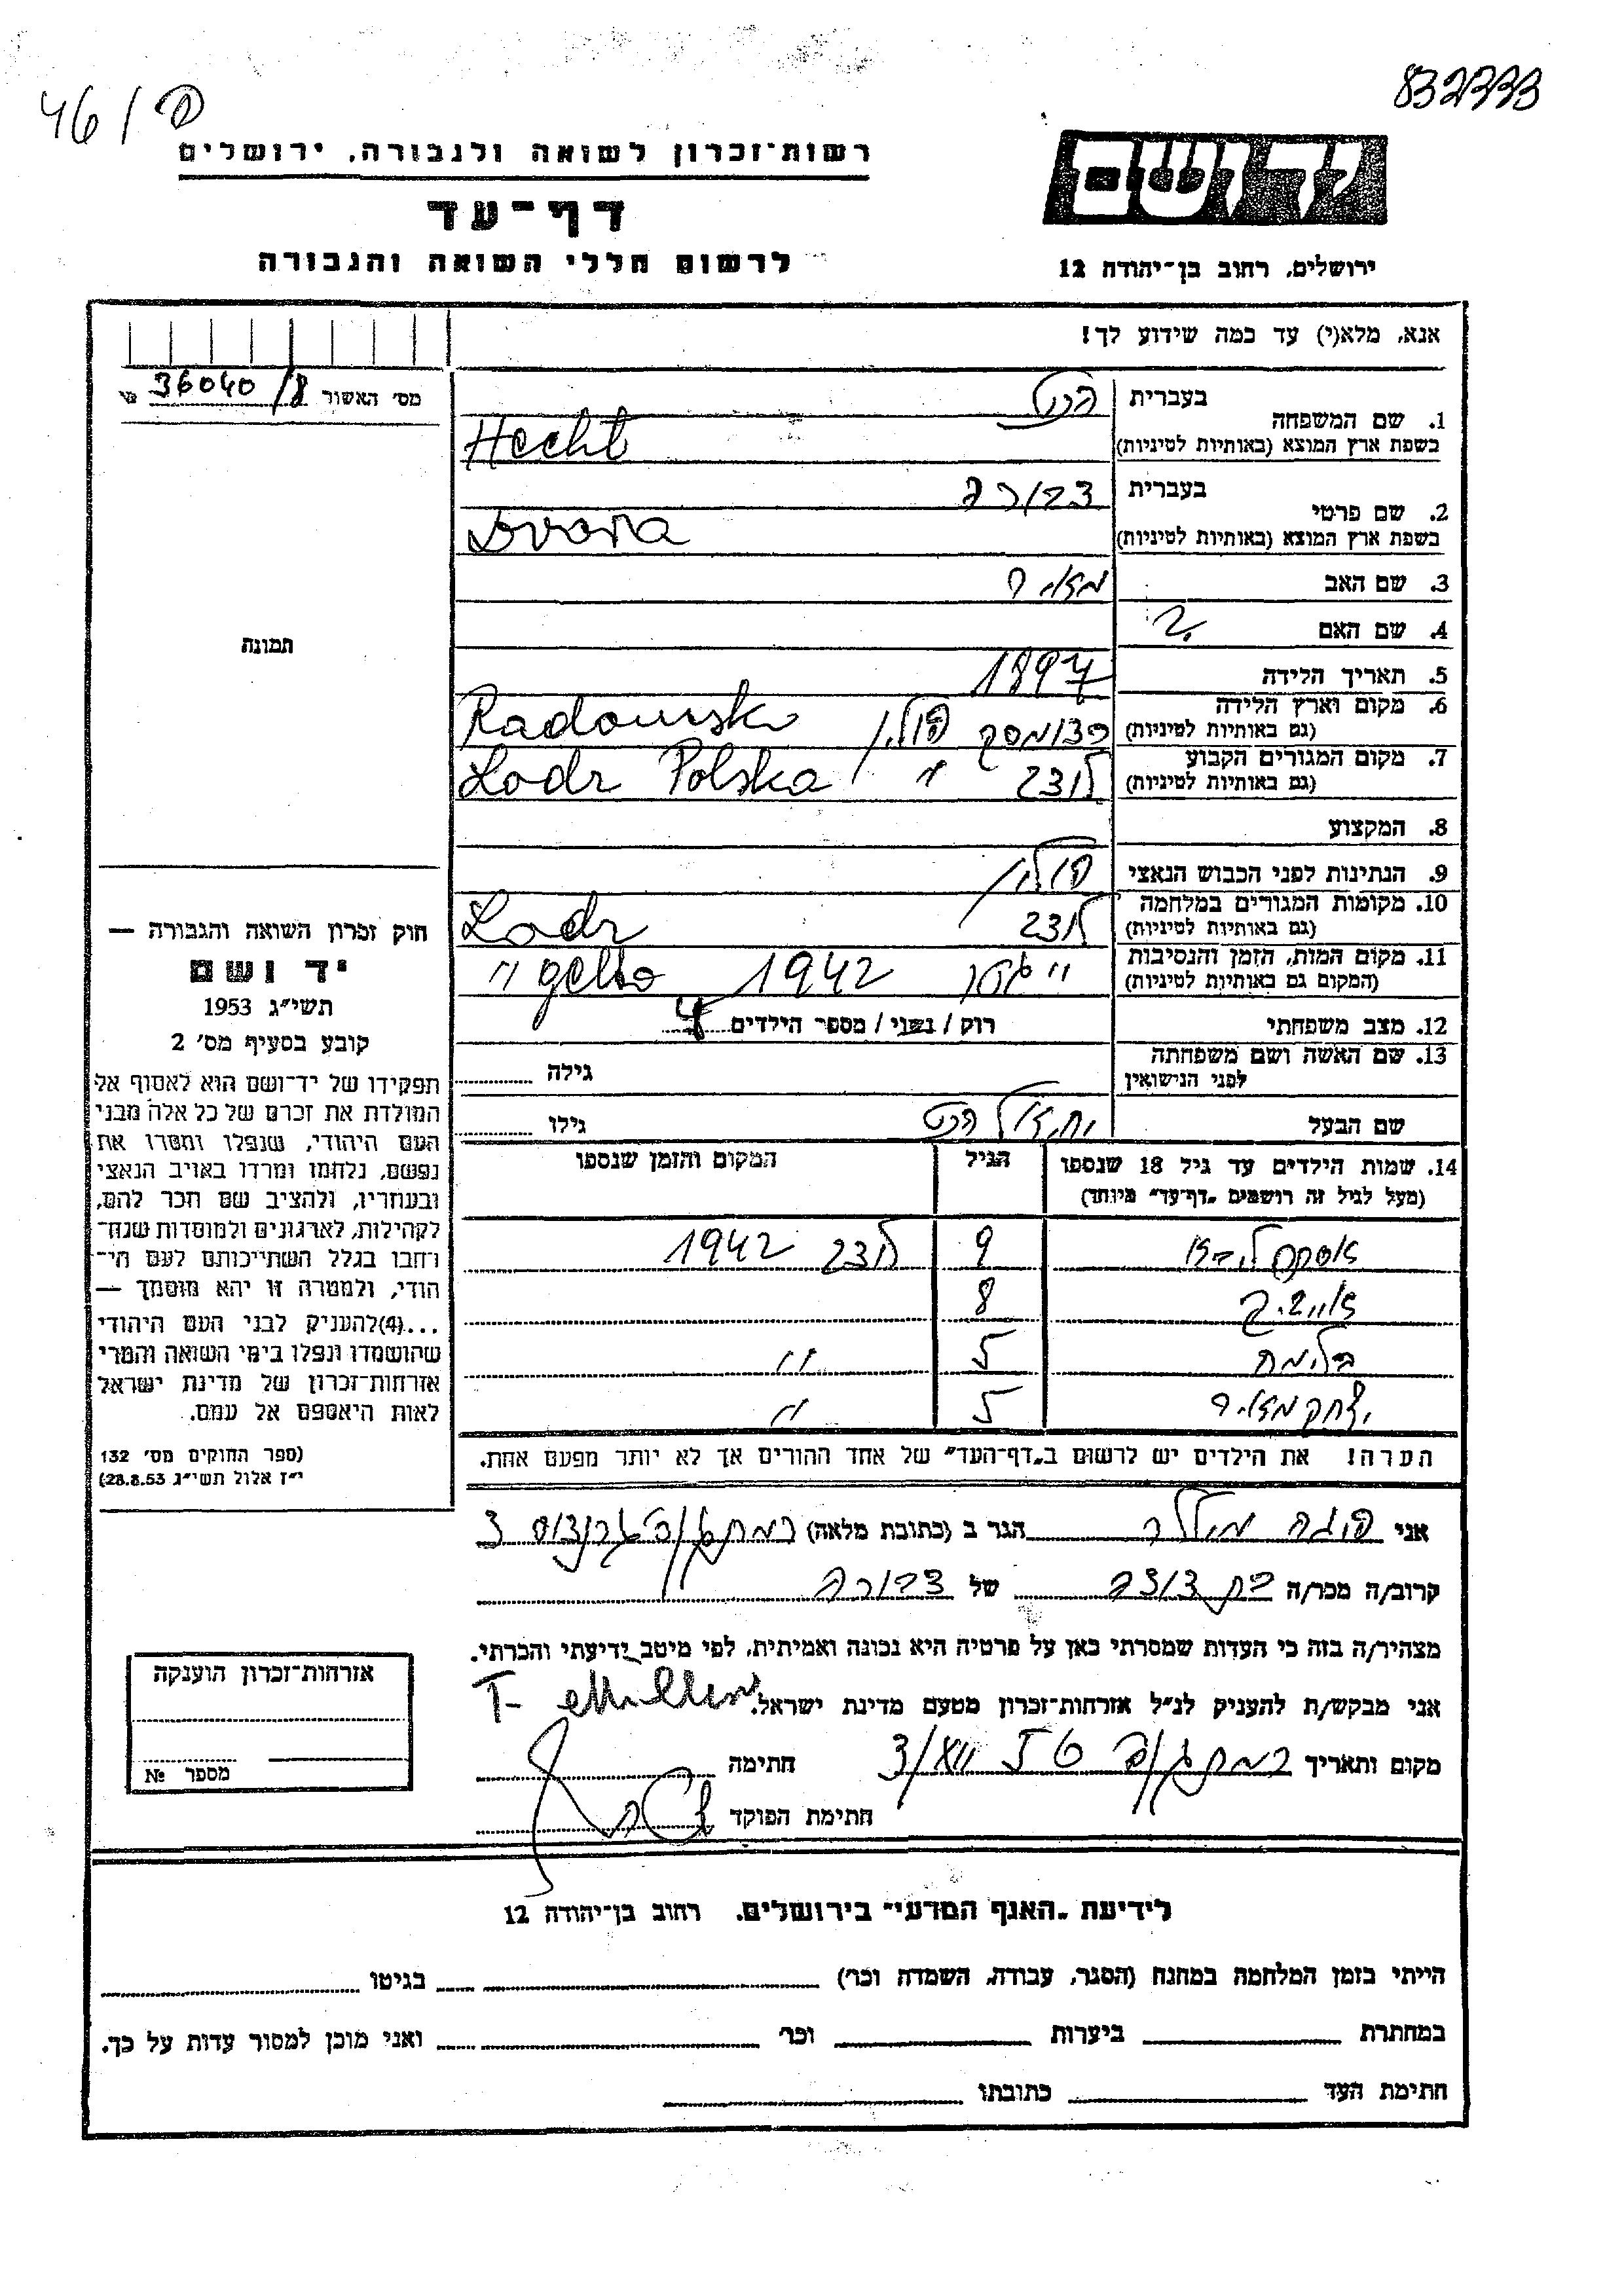 46/פ
832333
רשות־זכרון לשואה ולגבורה, ירושלים
דף־עד
לרשום חללי השואה והגבורה
יד ושם
ירושלים, רחוב בן־יהודה 12
אנא, מלא(י) עד כמה שידוע לך!
מס׳ האשור 36040/8
1. שם המשפחה
בעברית הכט
בשפת ארץ המוצא (באותיות לטיניות) Hecht
2. שם פרטי
בעברית דבורה
בשפת ארץ המוצא (באותיות לטיניות) Dvora
3. שם האב מאיר
4. שם האם ?
5. תאריך הלידה 1897
6. מקום וארץ הלידה
(גם באותיות לטיניות) רדומסק פולין Radomsko
7. מקום המגורים הקבוע
(גם באותיות לטיניות) לודז " Lodz Polska
8. המקצוע
9. הנתינות לפני הכבוש הנאצי פולין
10. מקומות המגורים במלחמה
(גם באותיות לטיניות) לודז Lodz
11. מקום המות, הזמן והנסיבות
(המקום גם באותיות לטיניות) " גטו 1942 " getto
12. מצב משפחתי רוק / נשוי / מספר הילדים 4
13. שם האשה ושם משפחתה
לפני הנישואין גילה
שם הבעל יחזקאל הכט גילו
14. שמות הילדים עד גיל 18 שנספו
(מעל לגיל זה רושמים „דף־עד” מיוחד)
הגיל
המקום והזמן שנספו
9 לודז 1942
8
בלומה 5 "
יצחק מאיר 5 "
הערה! את הילדים יש לרשום ב„דף־העד” של אחד ההורים אך לא יותר מפעם אחת.
תמונה
חוק זכרון השואה והגבורה —
יד ושם
תשי״ג 1953
קובע בסעיף מס׳ 2
תפקידו של יד־ושם הוא לאסוף אל
המולדת את זכרם של כל אלה מבני
העם היהודי, שנפלו ומסרו את
נפשם, נלחמו ומרדו באויב הנאצי
ובעוזריו, ולהציב שם וזכר להם,
לקהילות, לארגונים ולמוסדות שנח־
רבו בגלל השתייכותם לעם הי־
הודי, ולמטרה זו יהא מוסמך —
...(4)להעניק לבני העם היהודי
שהושמדו ונפלו בימי השואה והמרי
אזרחות־זכרון של מדינת ישראל
לאות היאספם אל עמם.
(ספר החוקים מס׳ 132
י״ז אלול תשי״ג 28.8.53)
אני פוגה מילר הגר ב (כתובת מלאה) רמת גן
קרוב/ה מכר/ה בת דודה של דבורה
מצהיר/ה בזה כי העדות שמסרתי כאן על פרטיה היא נכונה ואמיתית, לפי מיטב ידיעתי והכרתי.
אני מבקש/ת להעניק לנ״ל אזרחות־זכרון מטעם מדינת ישראל.
מקום ותאריך רמת גן חתימה
חתימת הפוקד
אזרחות־זכרון הוענקה
מספר №
לידיעת „האגף המדעי” בירושלים, רחוב בן־יהודה 12
הייתי בזמן המלחמה במחנה (הסגר, עבודה, השמדה וכר׳) בגיטו
במחתרת ביערות וכר׳ ואני מוכן למסור עדות על כך.
חתימת העד כתובתו